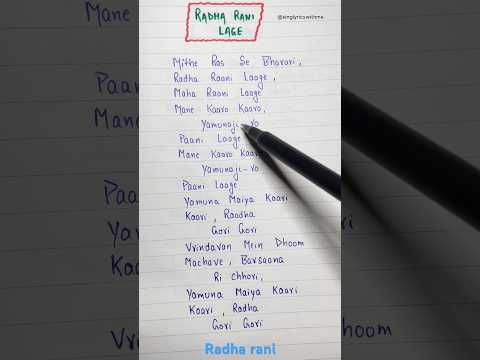 RADHA RANI
LAGE
@singlyricswithme
Mithe Ras Se Bharori,
Radha Raani Laage,
Maha Raani Laage
Mane Kaaro Kaaro,
Yamunaji-ro
Paani Laage
Mane Kaaro Kaaro
Yamunaji-ro
Paani Laage
Yamuna Maiya Kaari
Kaari, Raadha
Gori Gori
Vrindavan Mein Dhoom
Machave, Barsaana
Ri Chhori,
Yamuna Maiya Kaari
Kaari, Radha
Gori Gori
Radha rani